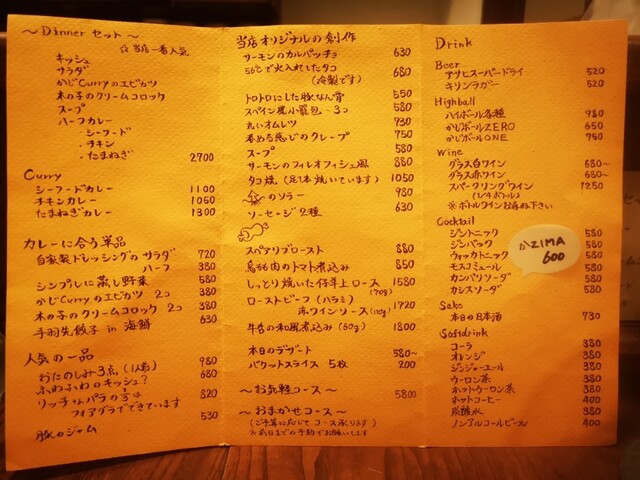 ～Dinner セット～
☆当店一番人気
キッシュ
サラダ
かじCurryのエビカツ
木の子のクリームコロッケ
スープ
ハーフカレー
・シーフード
・チキン
・たまねぎ 2700
Curry
シーフードカレー 1100
チキンカレー 1050
たまねぎカレー 1300
カレーに合う単品
自家製ドレッシングのサラダ 720
ハーフ 380
シンプルに蒸し野菜 580
かじCurryのエビカツ 2コ 380
木の子のクリームコロッケ 2コ 380
手羽先餃子 in 海鮮 630
人気の一品
おたのしみ3点(1人前) 980
ふわふわのキッシュ? 680
リッチなパテの
フォアグラでできています 820
豚のジャム 530
当店オリジナルの創作
サーモンのカルパッチョ 630
56℃で火入れしたタコ 680
(冷製です)
トロトロにした豚なん骨 550
スペイン風小籠包 3コ 580
丸いオムレツ 730
春める恵びのクレープ 750
スープ 580
サーモンのフィレオフィッシュ風 880
タコ焼(足1本焼いています) 1050
のソテー 980
ソーセージ2種 630
スペアリブロースト 880
鳥もも肉のトマト煮込み 850
しっとり焼いた仔羊上ロース 1580
(70g)
ローストビーフ(ハラミ) 1720
赤ワインソース(110g)
牛舌の和風煮込み(60g) 1800
本日のデザート 580～
バケットスライス 5枚 200
～お気軽コース～ 5800
～おまかせコース～
(ご予算に応じてコース承ります)
※前日までの予約でお願いします
Drink
Beer
アサヒスーパードライ 520
キリンラガー 520
Highball
ハイボール各種 980
かじボールZERO 650
かじボールONE 750
Wine
グラス白ワイン 680～
グラス赤ワイン 680～
スパークリングワイン 1250
(1/4ボトル)
※ボトルワインお尋ね下さい
Cocktail
ジントニック 580
ジンバック 580
ウォッカトニック 580
モスコミュール 580
カンパリソーダ 580
カシスソーダ 580
かZIMA
600
Sake
本日の日本酒 730
Softdrink
コーラ 380
オレンジ 380
ジンジャーエール 380
ウーロン茶 380
ホットウーロン茶 380
ホットコーヒー 400
炭酸水 380
ノンアルコールビール 400